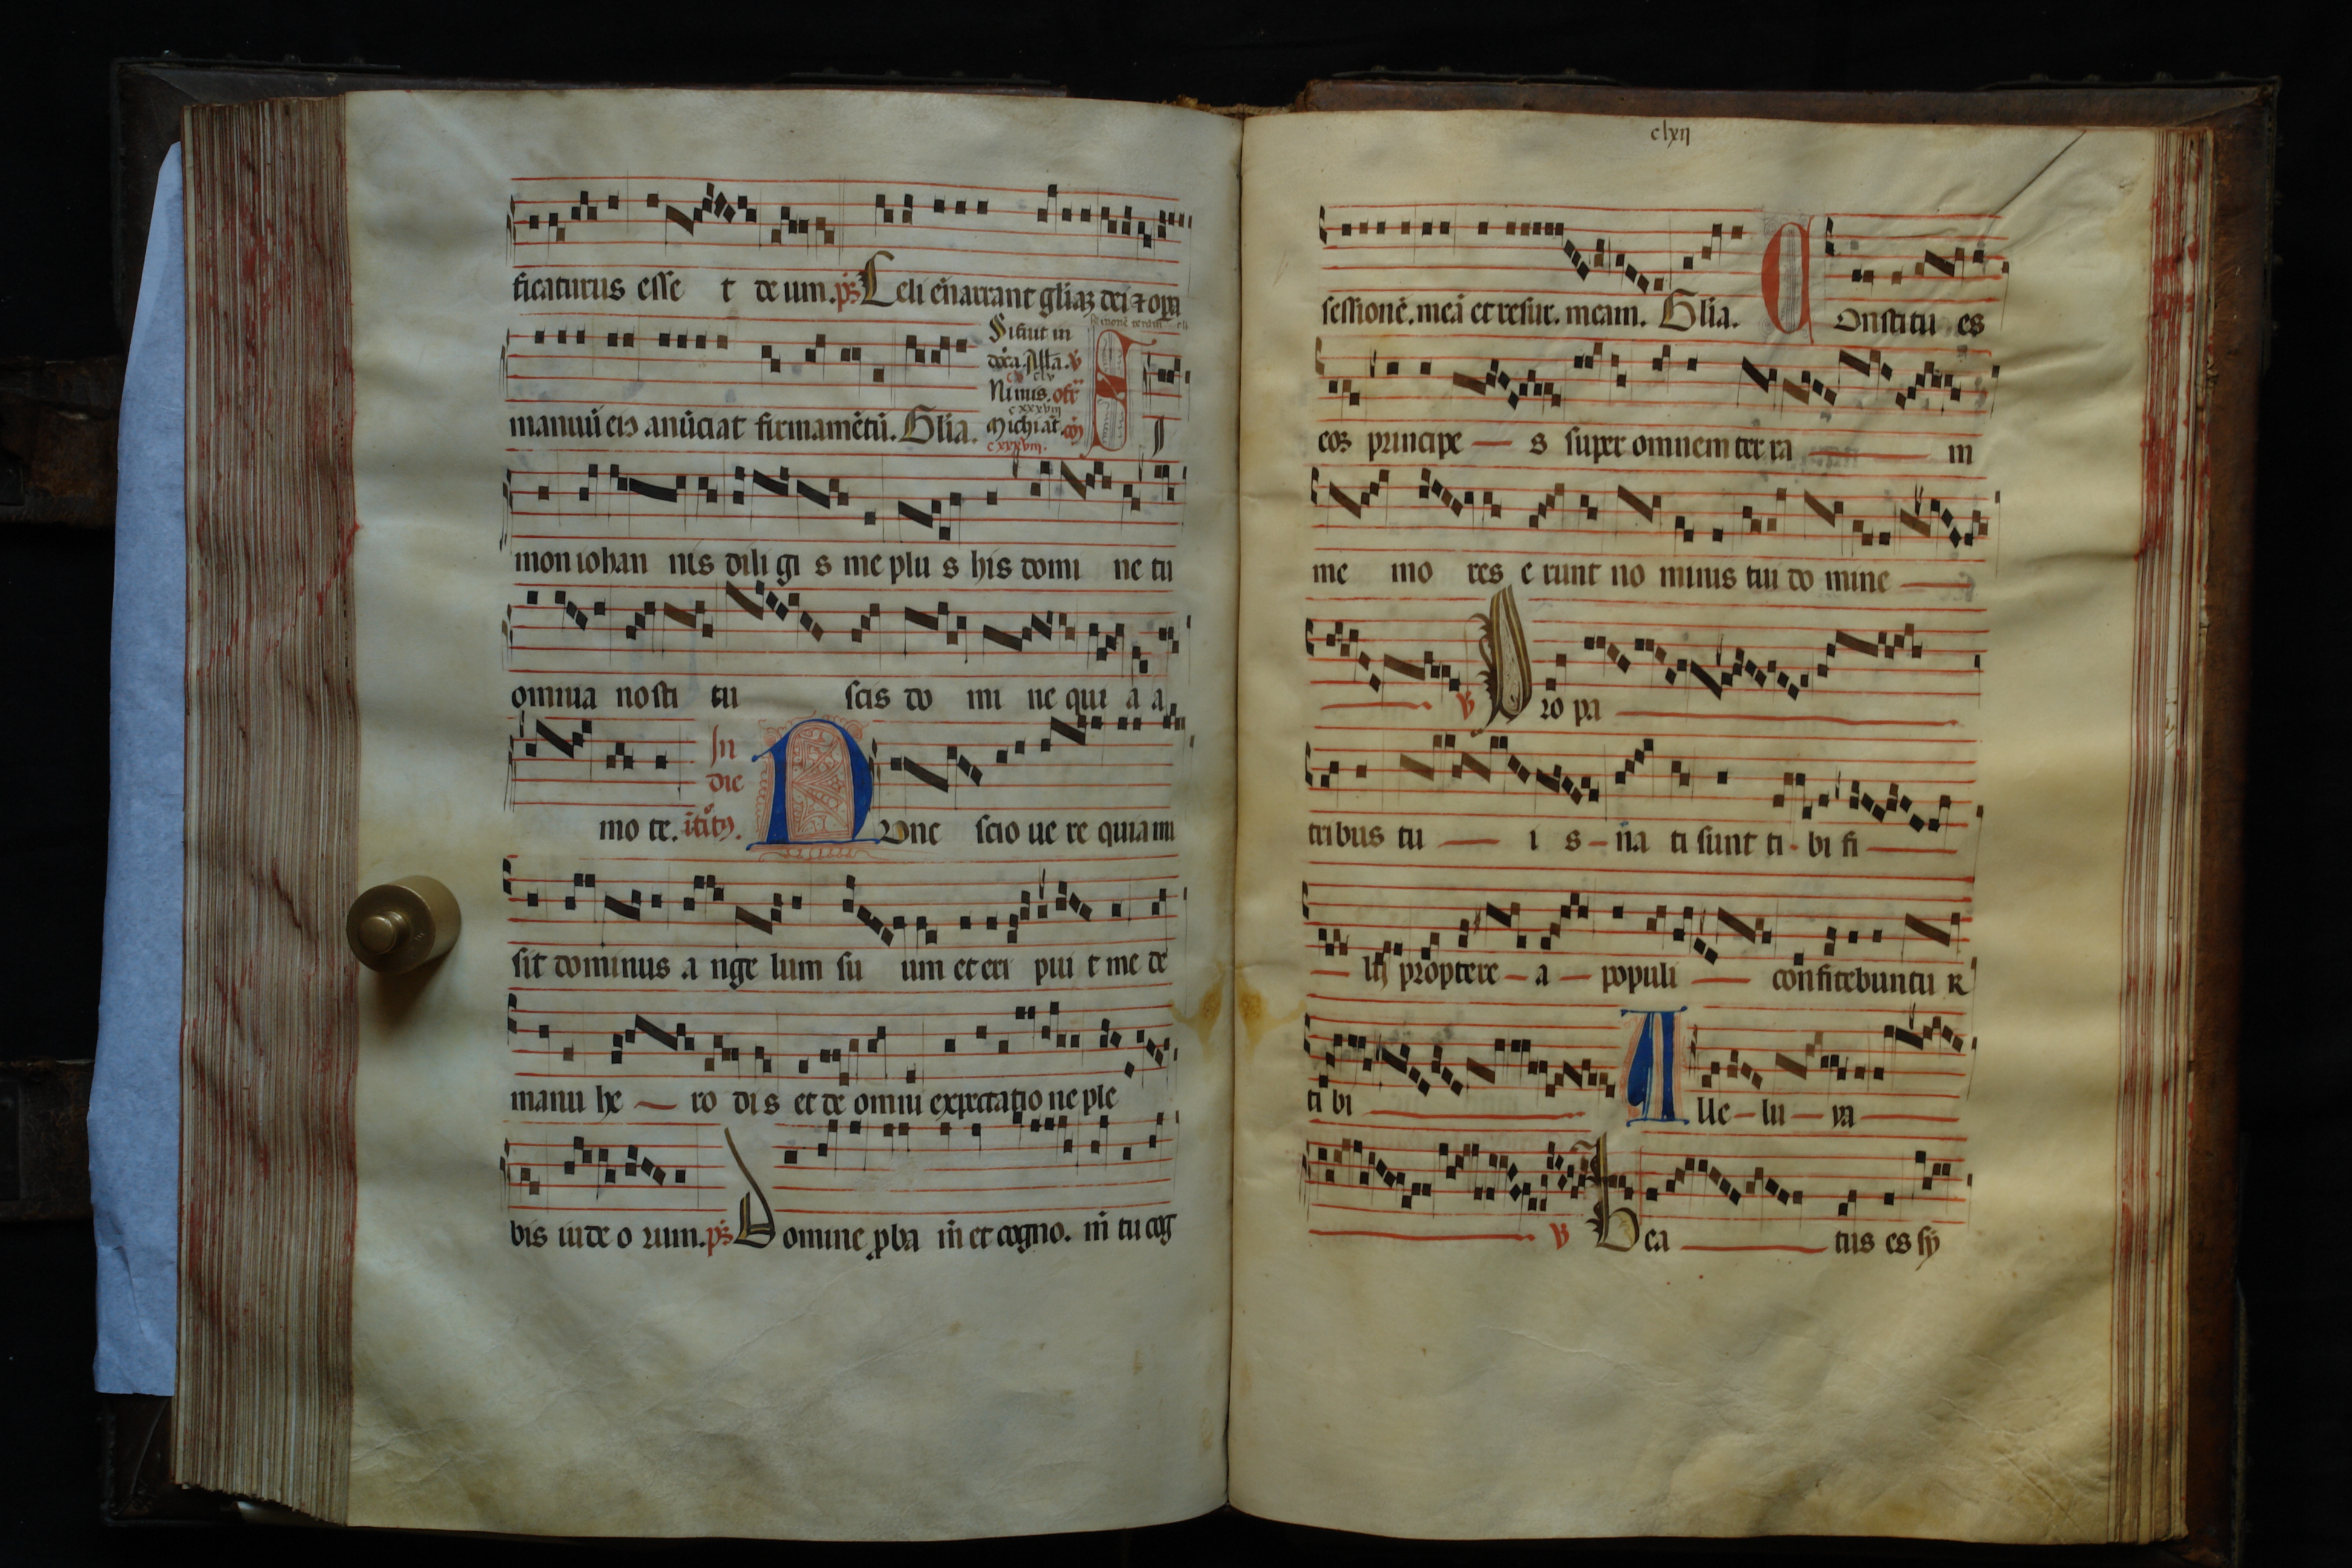 ficaturus esse t deum. ps Celi enarrant gliaz dei ⁊ opa
manuū eiꝰ anūciat firmamētū. Glia.
Nimis. off
cxxxviii
Michi aūt. cō
cxxxviii.
S I
mon iohan nis dili gi s me plu s his domi ne tu
omnia nosti tu scis do mi ne qui a a
mo te. In die
Nunc scio ue re quia mi
sit dominus a nge lum su um et eri pui t me de
manu he ro di s et de omni expectatio ne ple
bis iude o rum. ps Domine pba m̄ et cogno. m̄ tu cog
clxii
sessionē. meā et resur. meam. Glia. Constitu es
eos principe s super omnem ter ra m
me mo res e runt no minis tui do mine
V Pro pa
tribus tu i s na ti sunt ti bi fi
lij proptere a populi confitebuntu R
ti bi Alle lu ya
V Bea tus es sy